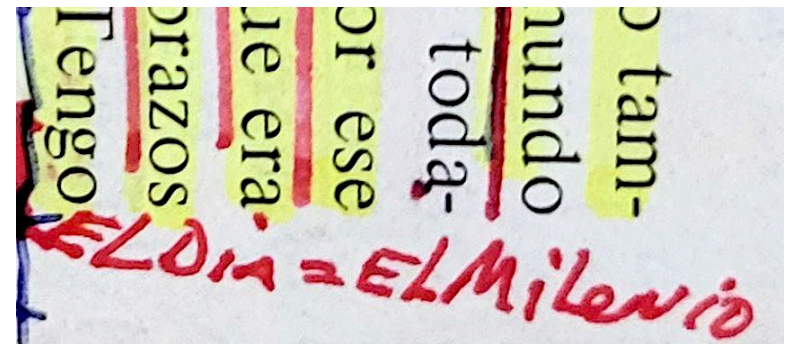 o tam-
mundo
toda-
or ese
ue era
brazos
Tengo
EL DiA = EL MiLeNio